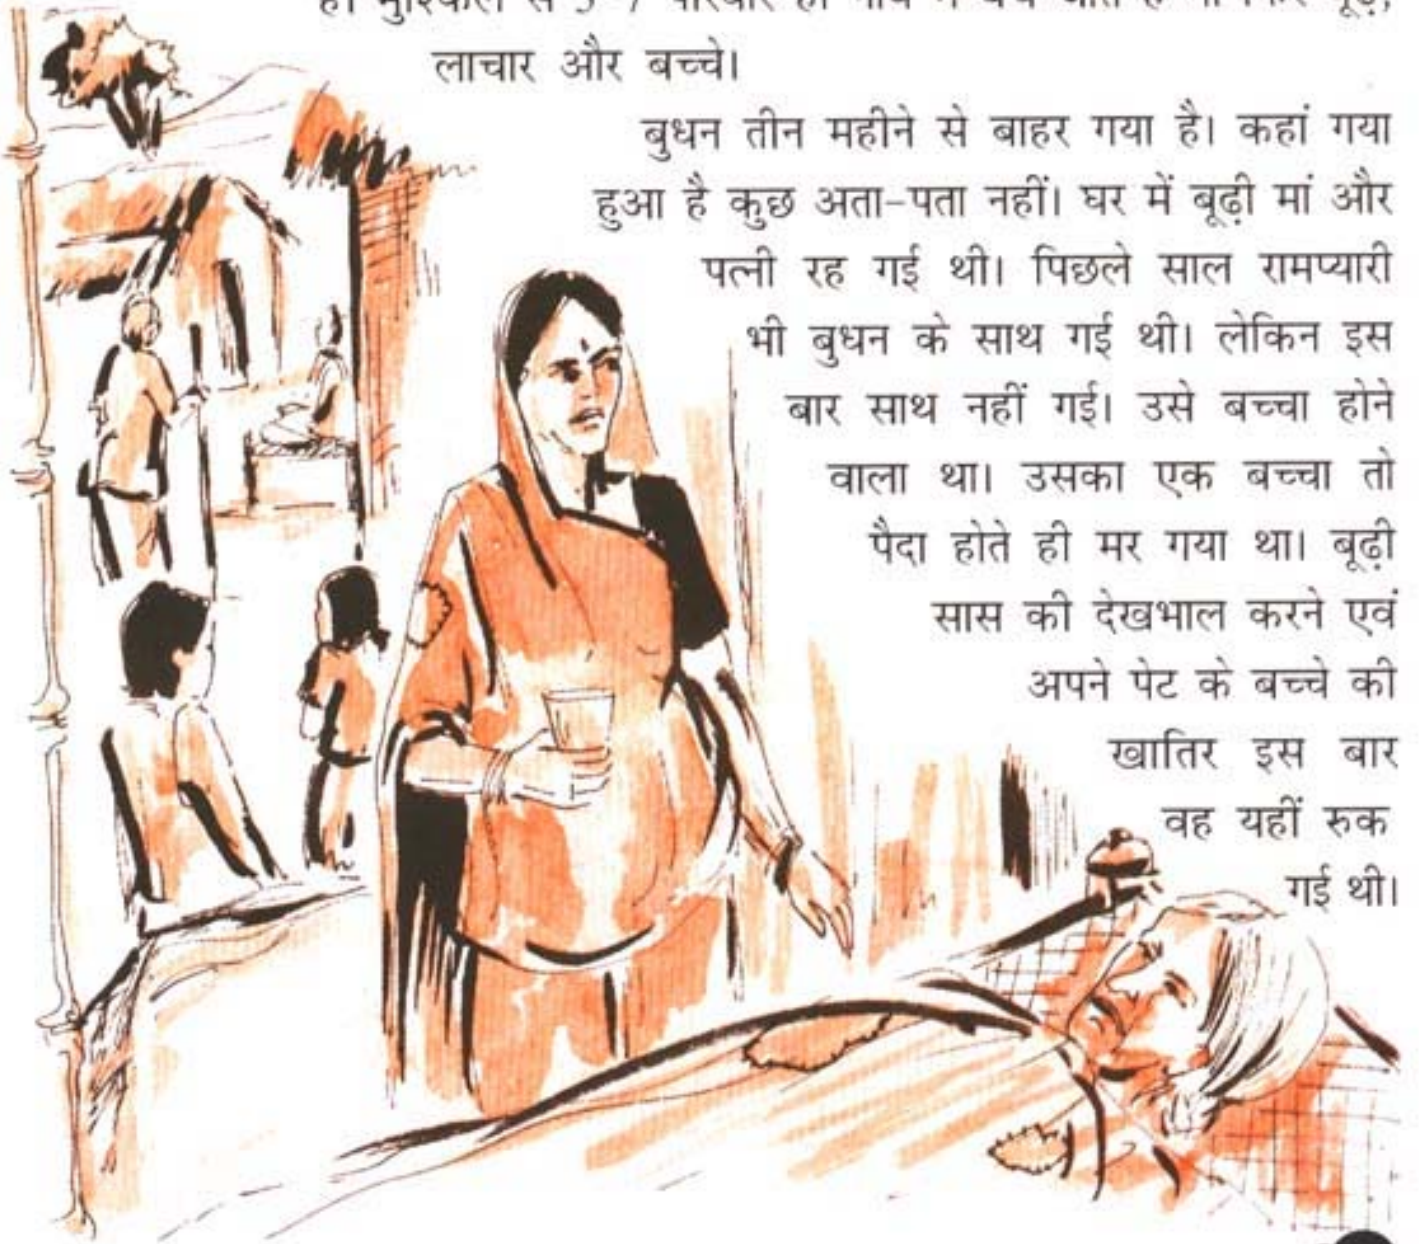 लाचार और बच्चे।
बुधन तीन महीने से बाहर गया है। कहां गया
हुआ है कुछ अता-पता नहीं। घर में बूढ़ी मां और
पत्नी रह गई थी। पिछले साल रामप्यारी
भी बुधन के साथ गई थी। लेकिन इस
बार साथ नहीं गई। उसे बच्चा होने
वाला था। उसका एक बच्चा तो
पैदा होते ही मर गया था। बूढ़ी
सास की देखभाल करने एवं
अपने पेट के बच्चे की
खातिर इस बार
वह यहीं रुक
गई थी।